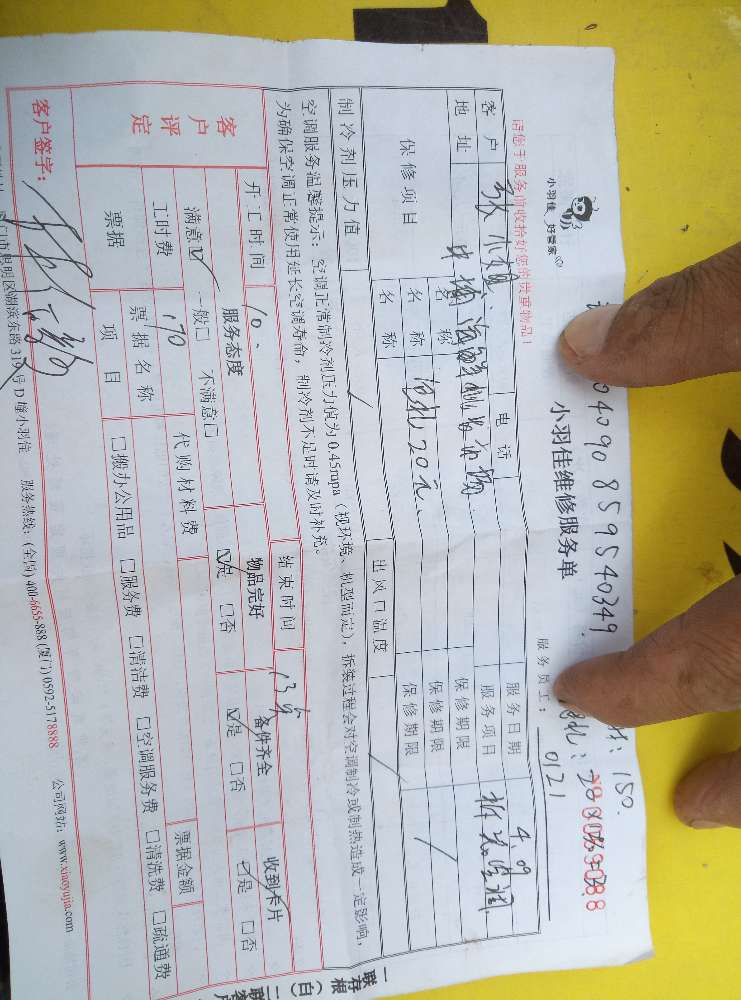 04090859540349
150.
小羽佳 好管家
小羽佳维修服务单
服务员工： 0121
请您于服务前收拾好您的贵重物品！
客户 张小姐 电话 服务日期 4.09
地址 中埔海鲜批发市场 服务项目 拆装空调
保修项目 名称 保修期限
名称 保修期限
名称 20元 保修期限
制冷剂压力值 出风口温度
空调服务温馨提示：空调正常制冷剂压力值为0.45mpa（视环境、机型而定），拆装过程会对空调制冷或制热造成一定影响，
为确保空调正常使用延长空调寿命，制冷剂不足时请及时补充。
开工时间 10、 结束时间
客户评定 服务态度 物品完好 备件齐全 收到卡片
满意☑ 一般□ 不满意□ ☑是 □否 ☑是 □否 ☑是 □否
工时费 170 代购材料费
票据 票据名称 票据金额
项目 □搬办公用品 □服务费 □清洁费 □空调服务费 □清洗费 □疏通费
客户签字：
门市思明区湖滨东路319号D幢小羽佳 服务热线：(全国) 400-6655-888 (厦门) 0592-5178888 公司网站：www.xiaoyujia.com
一联存根（白）二联客户